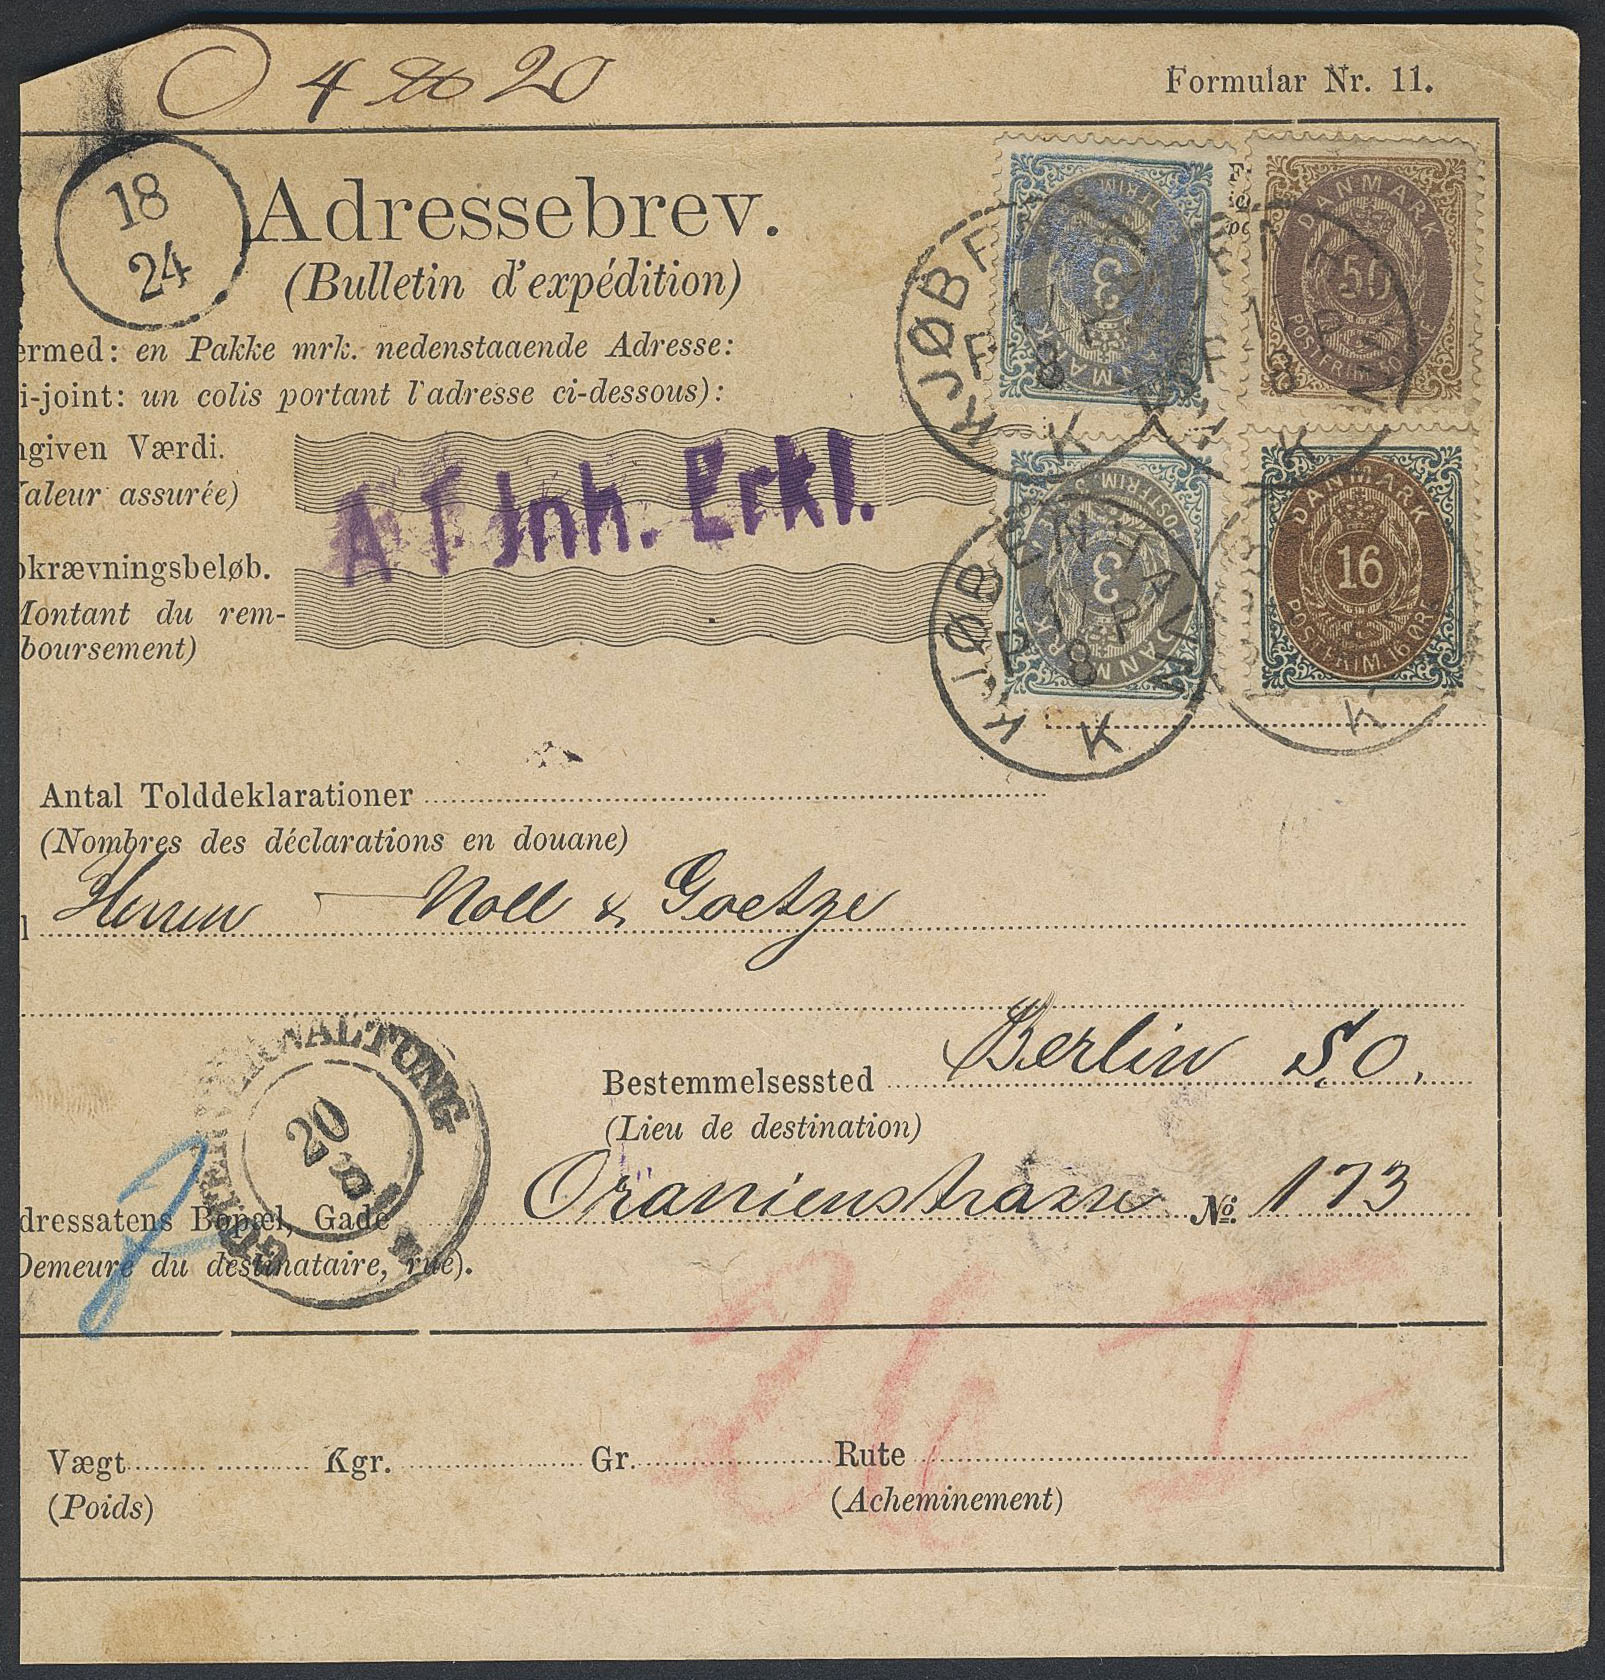 4 20
Formular Nr. 11.
18
24
Adressebrev.
(Bulletin d'expédition)
ermed: en Pakke mrk. nedenstaaende Adresse:
i-joint: un colis portant l'adresse ci-dessous):
ngiven Værdi.
Valeur assurée)
A T Inh. Erkl.
pkrævningsbeløb.
Montant du rem-
boursement)
DANMARK
50
POSTFRIM. 50 ØRE
3
DANMARK
POSTFRIM. 3
DANMARK
16
POSTFRIM. 16 ØRE
KJØBENHAVN
K
KJØBENHAVN
8
K
K
Antal Tolddeklarationer
(Nombres des déclarations en douane)
l Herren Noll & Goetze
Bestemmelsessted Berlin SO.
(Lieu de destination)
GÜTERVERWALTUNG
20
8
dressatens Bopæl, Gade Oranienstrasse No. 173
Demeure du destinataire, rue).
26 I
Vægt Kgr. Gr. Rute
(Poids) (Acheminement)